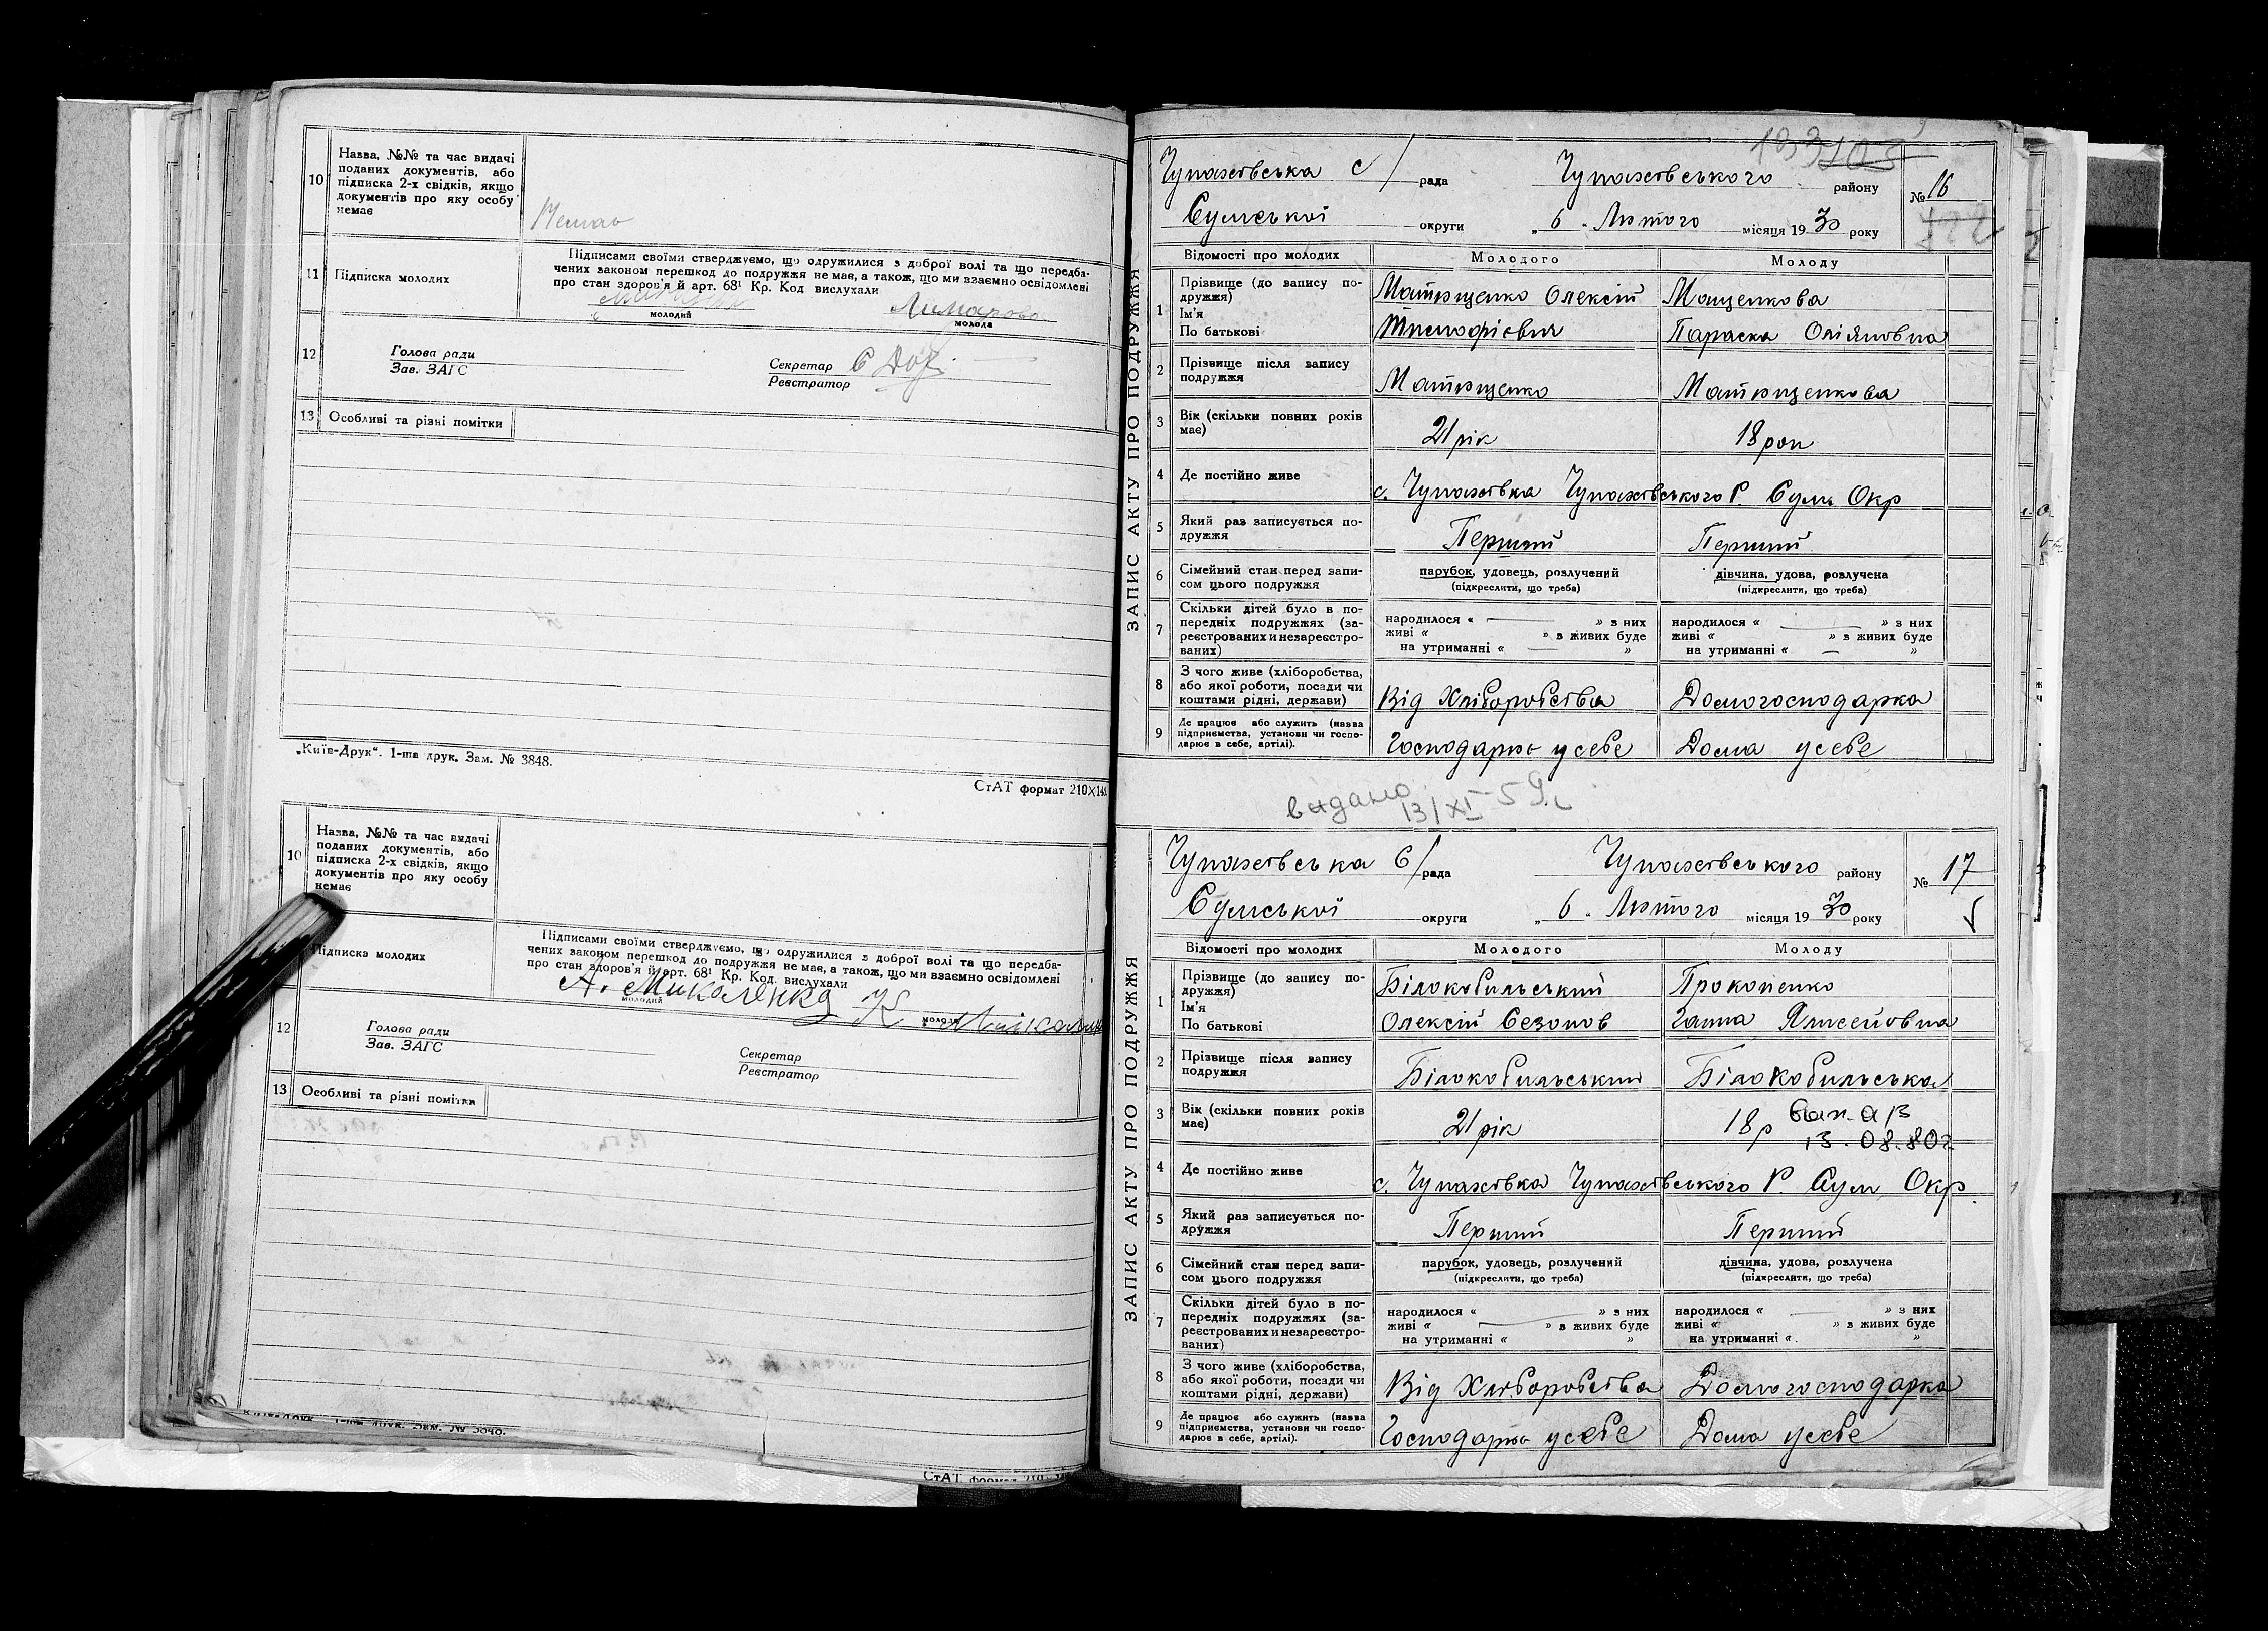 10
Назва, №№ та час видачі
поданих документів, або
підписка 2-х свідків, якщо
документів про яку особу
немає
11
Підписка молодих
Підписами своїми стверджуємо, що одружилися з доброї волі та що передба-
чених законом перешкод до подружжя не має, а також, що ми взаємно освідомлені
про стан здоров'я й арт. 68¹ Кр. Код вислухали
молодий
молода
12
Голова ради
Зав. ЗАГС
Секретар
Реєстратор
13
Особливі та різні помітки
„Київ-Друк". 1-ша друк. Зам. № 3848.
СтАТ формат 210×148
10
Назва, №№ та час видачі
поданих документів, або
підписка 2-х свідків, якщо
документів про яку особу
немає
Підписка молодих
Підписами своїми стверджуємо, що одружилися з доброї волі та що передба-
чених законом перешкод до подружжя не має, а також, що ми взаємно освідомлені
про стан здоров'я й арт. 68¹ Кр. Код. вислухали
А. Микаленко
молодий
молода
12
Голова ради
Зав. ЗАГС
Секретар
Реєстратор
13
Особливі та різні помітки
СтАТ формат 210
ЗАПИС АКТУ ПРО ПОДРУЖЖЯ
Чупахівська с/рада Чупахівського району № 16
Сумської округи „6" Лютого місяця 1930 року
Відомості про молодих Молодого Молоду
1 Прізвище (до запису по-
дружжя)
Ім'я
По батькові
Матющенко Олексій Мащенкова
Тимофієвич Параска Оліяновна
2 Прізвище після запису
подружжя
Матющенко Матющенкова
3 Вік (скільки повних років
має)
21 рік 18 рок
4 Де постійно живе
с. Чупахівка Чупахівського Р. Сумь Окр
5 Який раз записується по-
дружжя
Перший Перший
6 Сімейний стан перед запи-
сом цього подружжя
парубок, удовець, розлучений дівчина, удова, розлучена
(підкреслити, що треба) (підкреслити, що треба)
7 Скільки дітей було в по-
передніх подружжях (за-
реєстрованих и незареєстро-
ваних)
народилося « » з них народилося « » з них
живі « » в живих буде живі « » в живих буде
на утриманні « » на утриманні « »
8 З чого живе (хліборобства,
або якої роботи, посади чи
коштами рідні, держави)
Від Хліборобства Домогосподарка
9 Де працює або служить (назва
підприємства, установи чи госпо-
дарює в себе, артілі).
Господарює усебе Дома усебе
видано
13/XI-59г
ЗАПИС АКТУ ПРО ПОДРУЖЖЯ
Чупахівська С/рада Чупахівського району № 17
Сумської округи „6" Лютого місяця 1930 року
Відомості про молодих Молодого Молоду
1 Прізвище (до запису по-
дружжя)
Ім'я
По батькові
Білокобильський Прокопенко
Олексій Сезонов Ганна
2 Прізвище після запису
подружжя
Білокобильський Білокобильська
3 Вік (скільки повних років
має)
21 рік 18 р
13.08.80г.
4 Де постійно живе
с. Чупахівка Чупахівського Р. Сум Окр.
5 Який раз записується по-
дружжя
Перший Перший
6 Сімейний стан перед запи-
сом цього подружжя
парубок, удовець, розлучений дівчина, удова, розлучена
(підкреслити, що треба) (підкреслити, що треба)
7 Скільки дітей було в по-
передніх подружжях (за-
реєстрованих и незареєстро-
ваних)
народилося « » з них народилося « » з них
живі « » в живих буде живі « » в живих буде
на утриманні « » на утриманні « »
8 З чого живе (хліборобства,
або якої роботи, посади чи
коштами рідні, держави)
Від Хліборобства Домогосподарка
9 Де працює або служить (назва
підприємства, установи чи госпо-
дарює в себе, артілі).
Господарює усебе Дома усебе